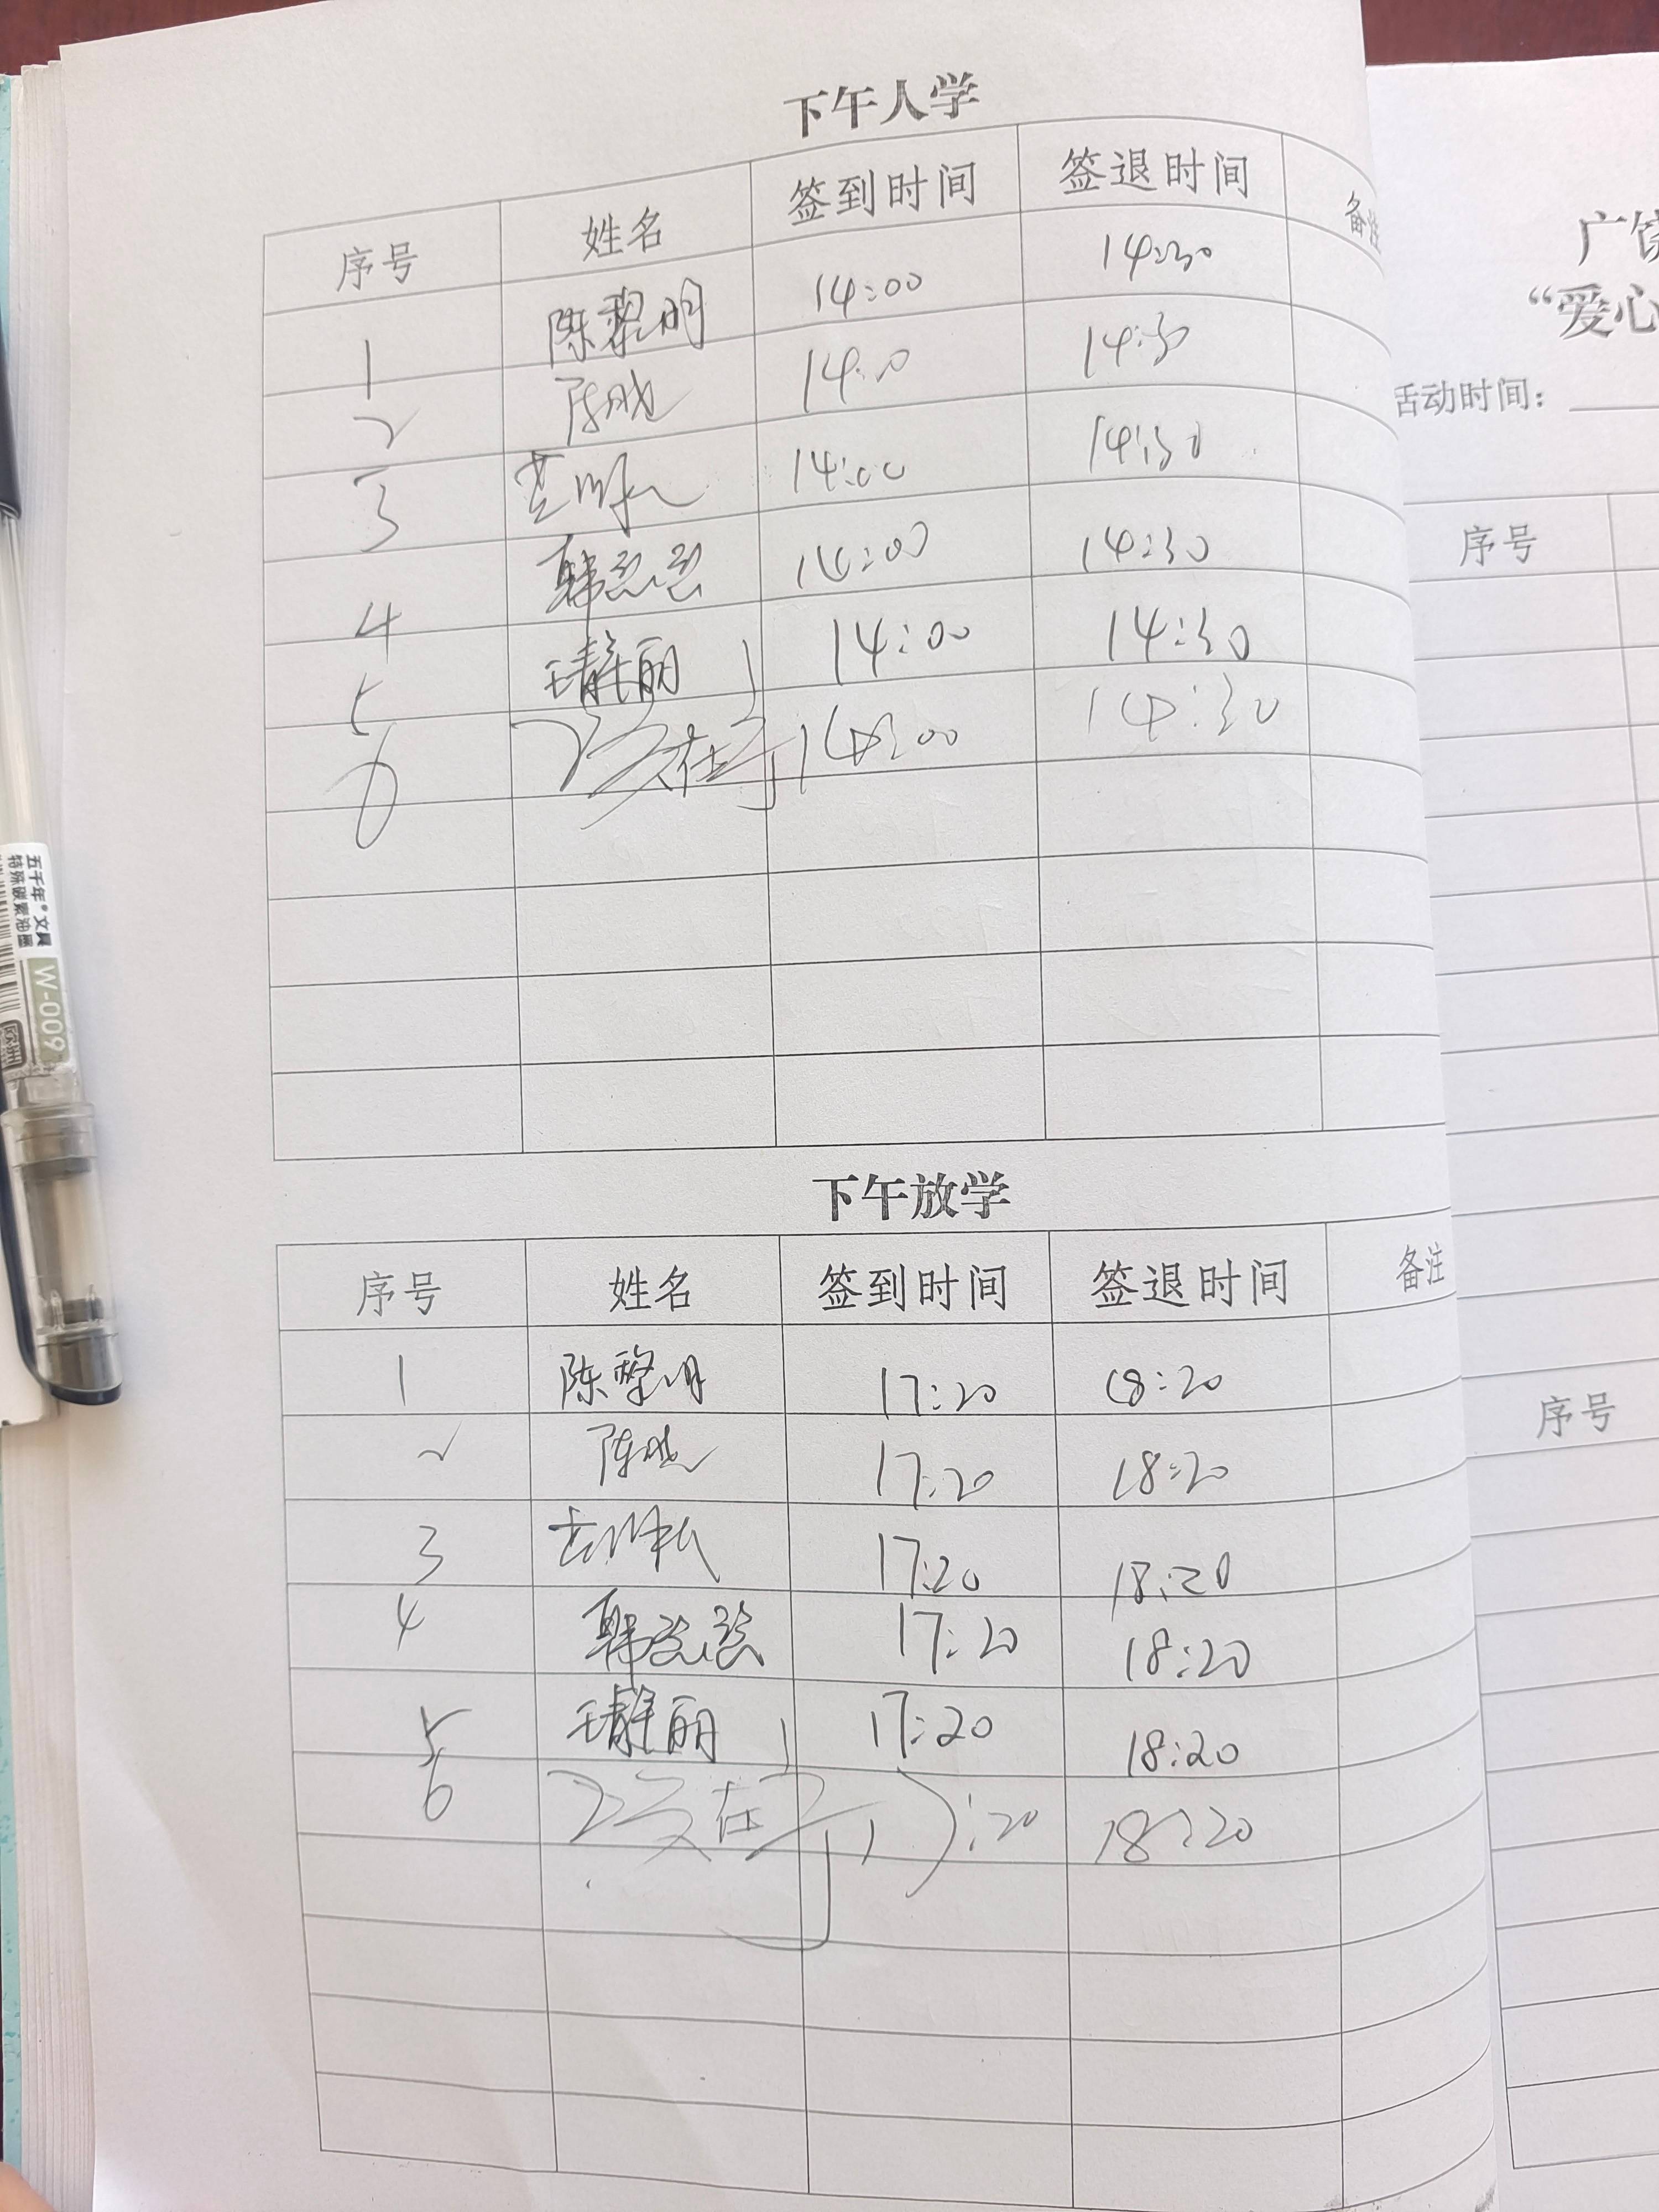 下午入学
序号 姓名 签到时间 签退时间 备注
1 陈黎明 14:00 14:30
2 陈晓 14:00 14:30
3 14:00 14:30
4 韩忠忠 14:00 14:30
5 王静丽 14:00 14:30
6 14:00 14:30
下午放学
序号 姓名 签到时间 签退时间 备注
1 陈黎明 17:20 18:20
2 陈晓 17:20 18:20
3 17:20 18:20
4 韩 17:20 18:20
5 王静丽 17:20 18:20
6 17:20 18:20
广饶
“爱心
活动时间：
序号
序号
五千年®文具
特殊碳素油墨
W-009